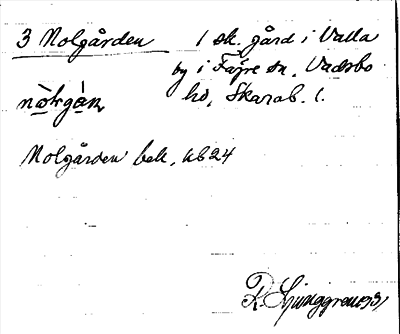 3 Nolgården 1 sk. gård i Valla
by i Fägre sn, Vadsbo
hd, Skarab. l.
Nolgården bek. ub 24
R. Ljunggren 1931